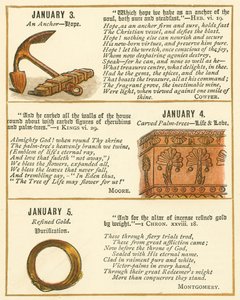 JANUARY 3.
An Anchor—Hope.
"Which hope we have as an anchor of the
soul, both sure and steadfast."—HEB. vi. 19.
Hope, as an anchor firm and sure, holds fast
The Christian vessel, and defies the blast.
Hope! nothing else can nourish and secure
His new-born virtues, and preserve him pure.
Hope! let the wretch, once conscious of the joy,
Whom now despairing agonies destroy,
Speak—for he can, and none so well as he—
What treasures centre, what delights, in thee.
Had he the gems, the spices, and the land
That boasts the treasure, all at his command;
The fragrant grove, the inestimable mine,
Were light, when viewed against one smile of
thine.
COWPER.
"And he carved all the walls of the house
round about with carved figures of cherubims
and palm-trees."—1 KINGS vi. 29.
Almighty God! when round Thy shrine
The palm-tree's heavenly branch we twine,
(Emblem of life's eternal ray,
And love that fadeth "not away,")
We bless the flowers, expanded all,
We bless the leaves that never fall,
And trembling say, "In Eden thus,
The Tree of Life may flower for us!"
MOORE.
JANUARY 4.
Carved Palm-trees—Life & Love.
JANUARY 5.
Refined Gold.
Purification.
"And for the altar of incense refined gold
by weight."—1 CHRON. xxviii. 18.
These through fiery trials trod,
These from great affliction came;
Now before the throne of God,
Sealed with His eternal name.
Clad in raiment pure and white,
Victor-palms in every hand,
Through their great Redeemer's might
More than conquerors they stand.
MONTGOMERY.